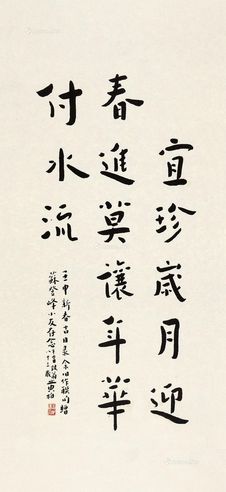 宜珍歲月迎
春進莫讓年華
付水流
壬申新春吉日录旧作联句贈
蘇登峰小友存念